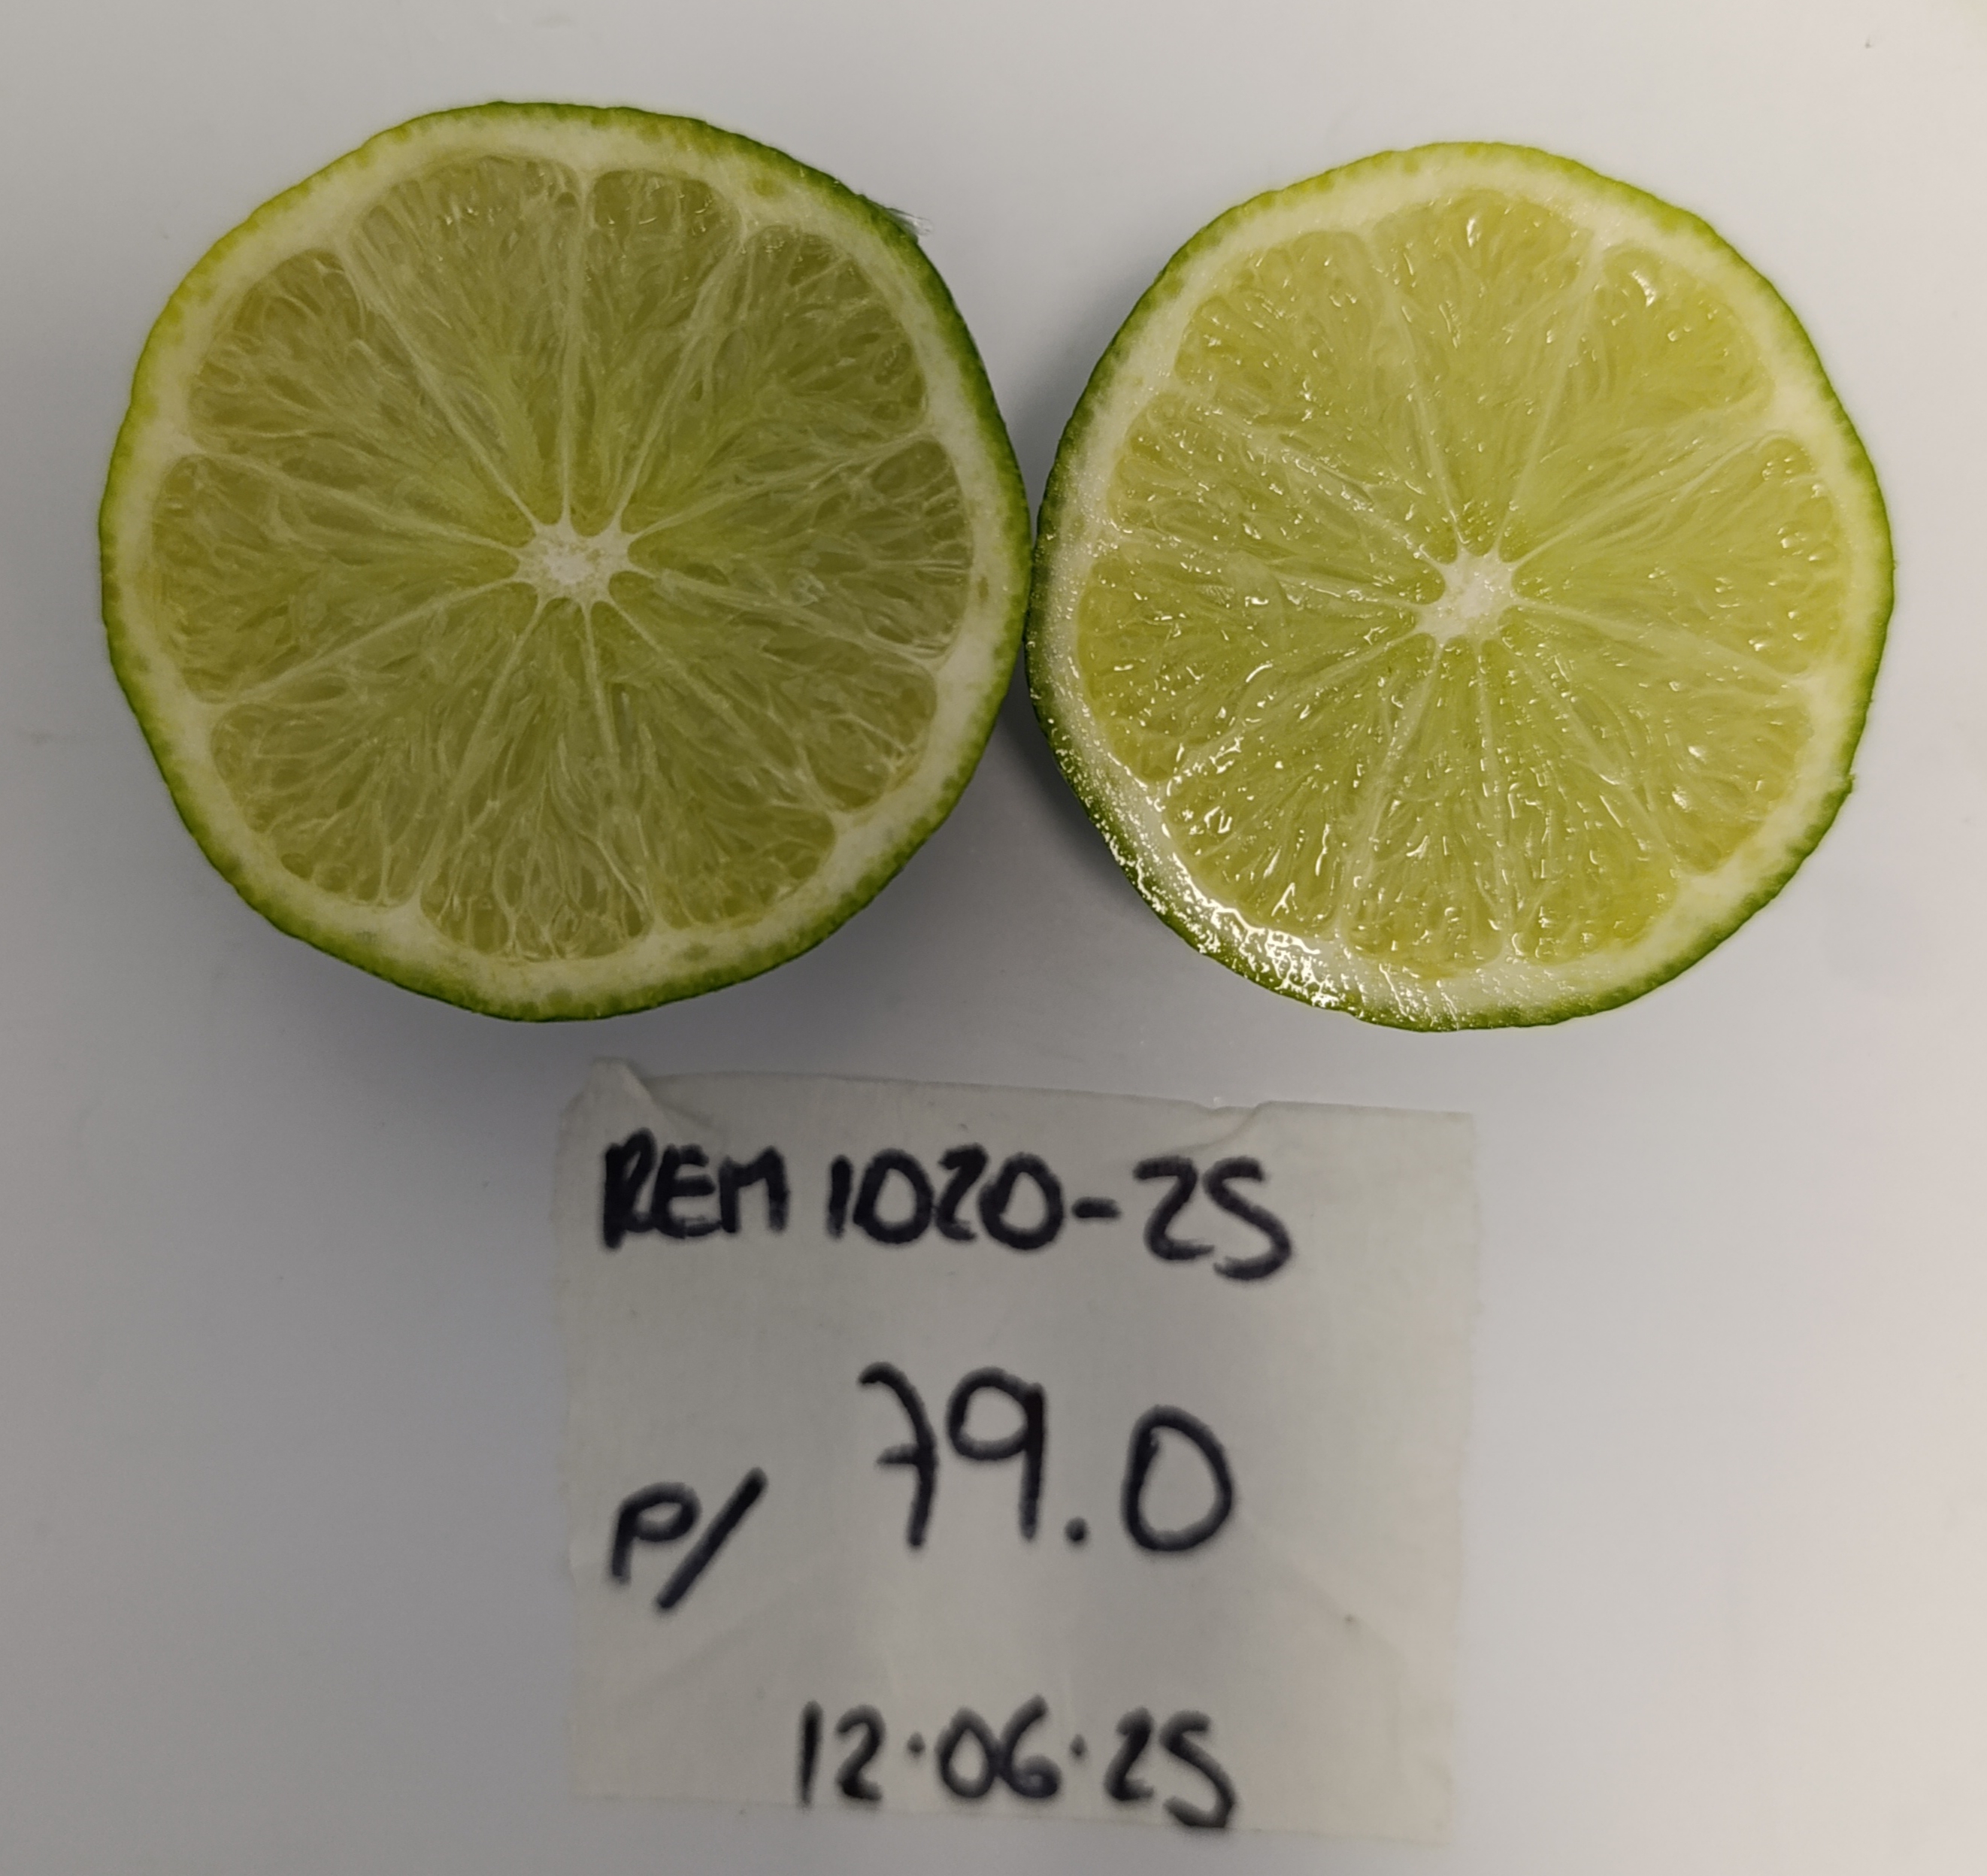 REM 1020-25
P/ 79.0
12·06·25